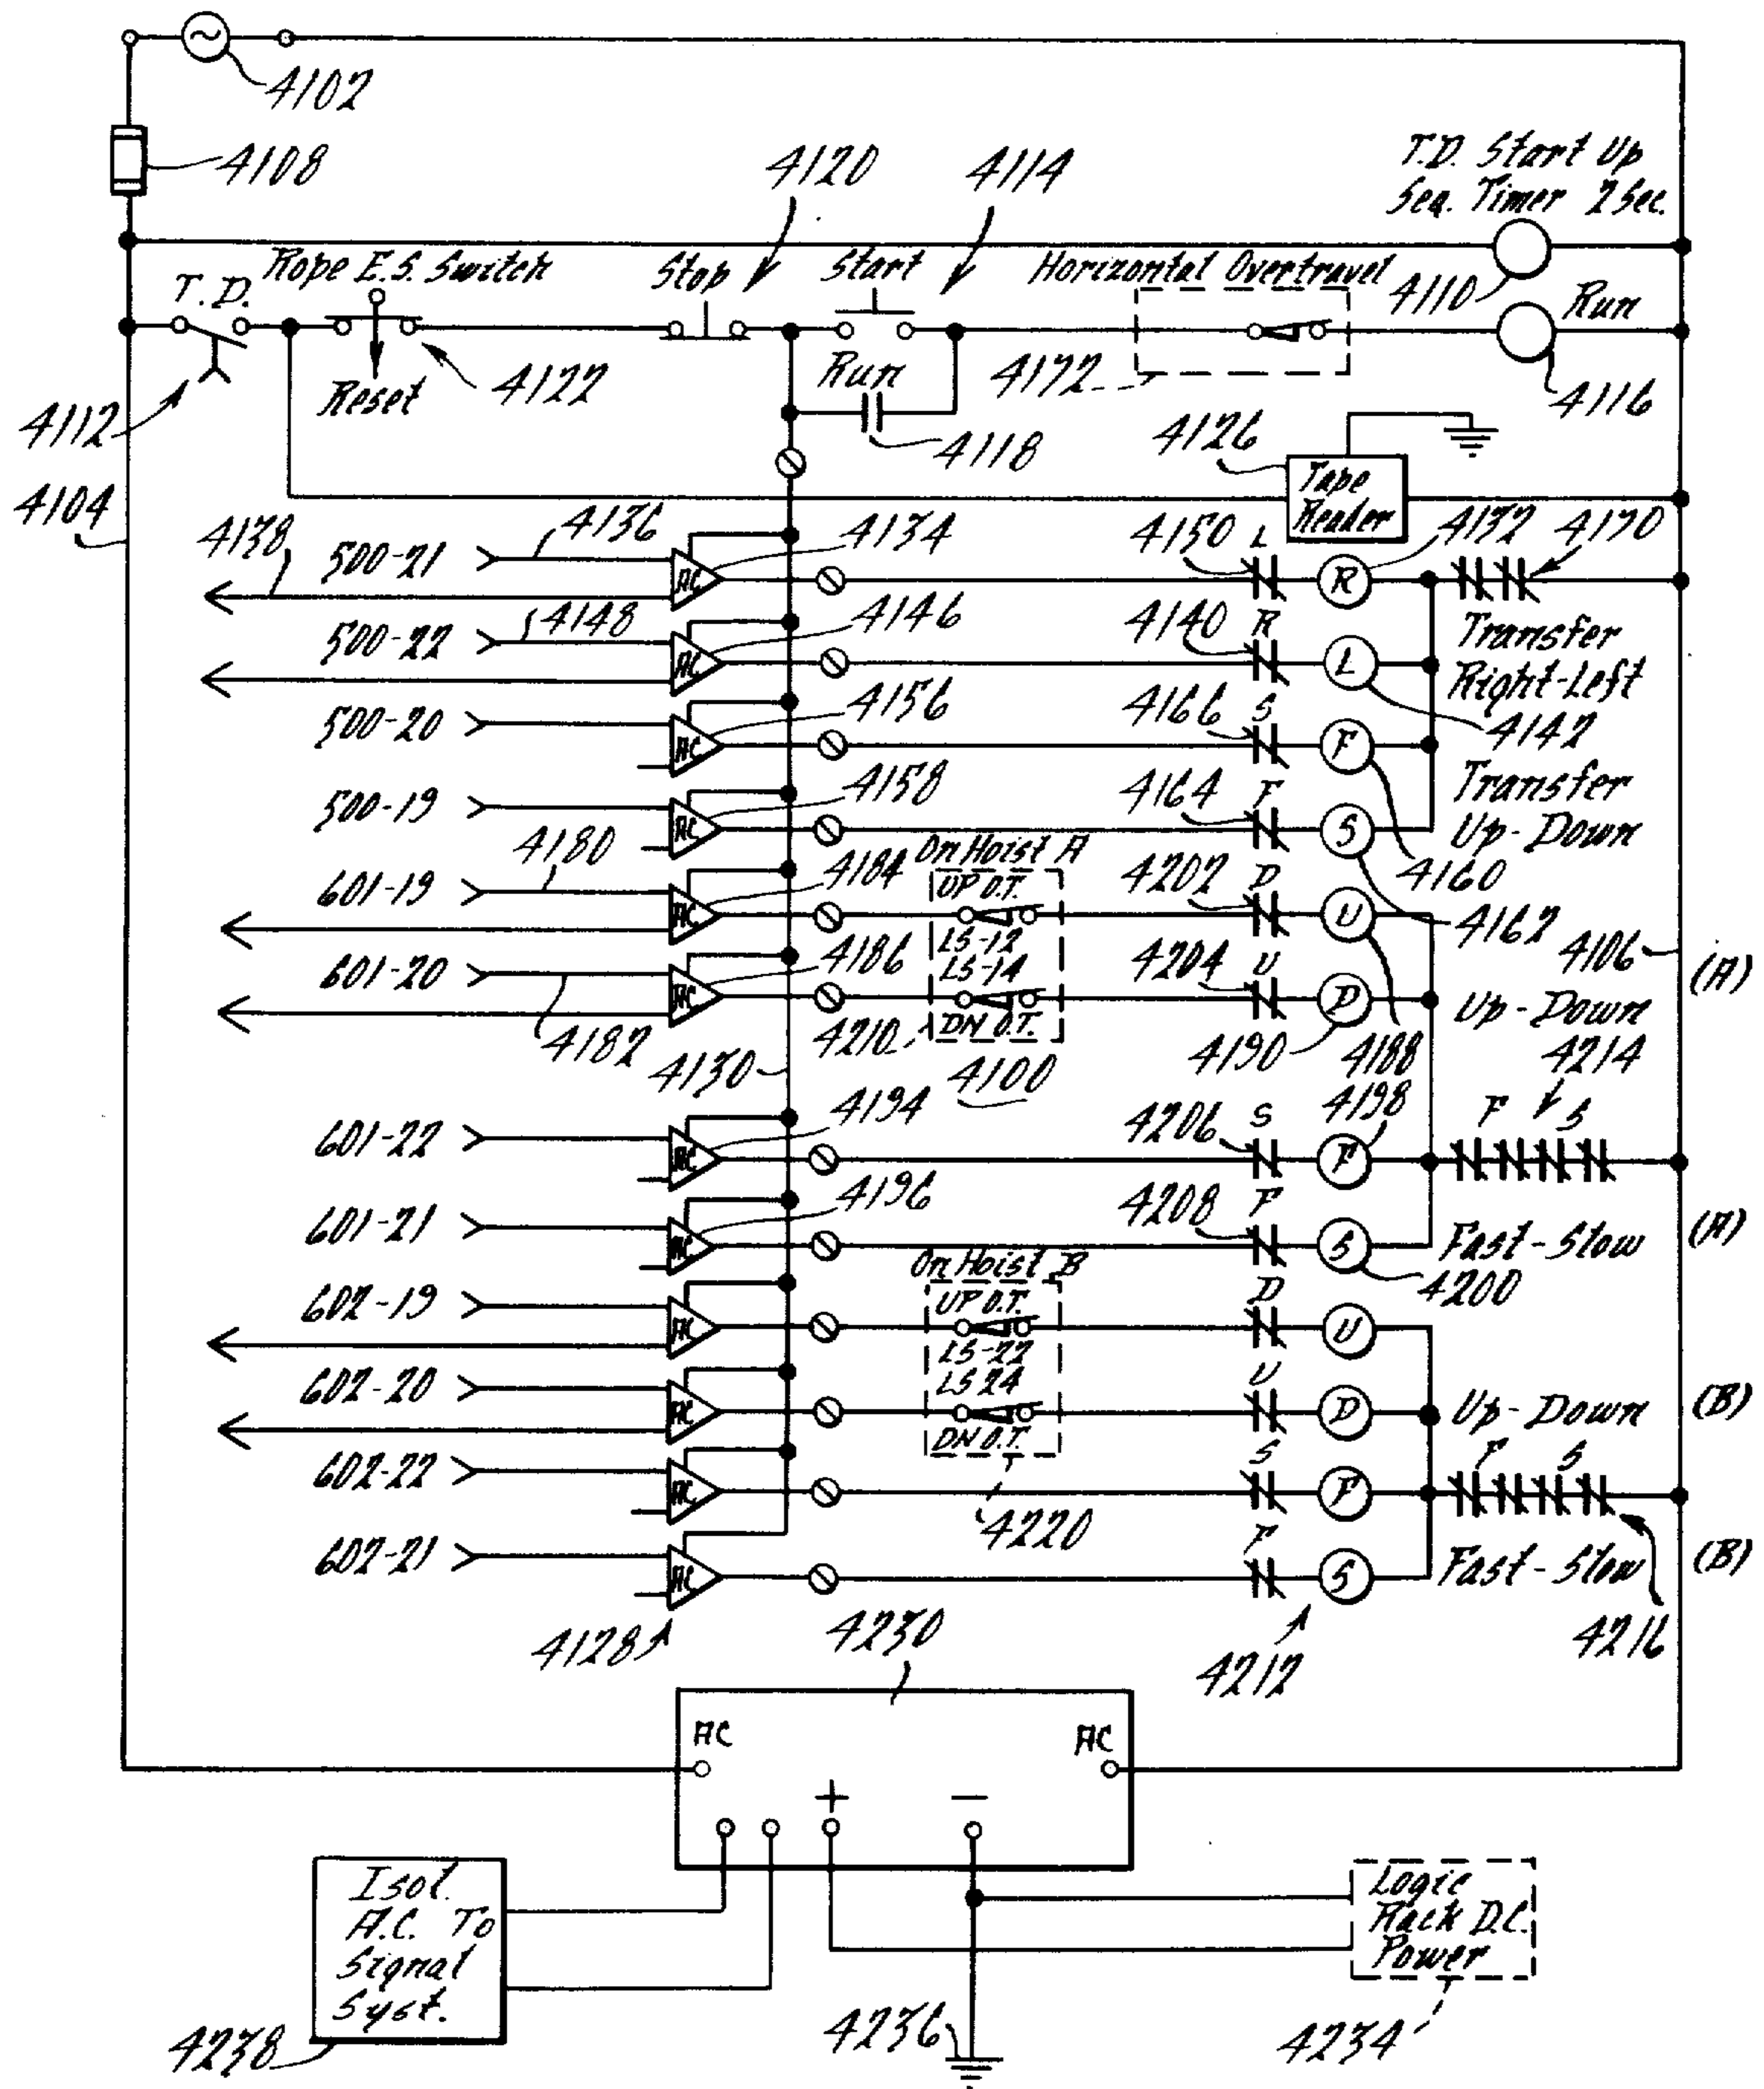 4102
4108
4120
4114
T.D. Start Up
Seq. Timer 2 Sec.
Rope E.S. Switch
Stop
Start
Horizontal Overtravel
4110
Run
T.D.
Reset
4122
Run
4172
4116
4112
4118
4126
Tape
Reader
4104
4138
500-21
4136
AC
4134
4150
L
R
4132
4170
500-22
4148
AC
4146
4140
R
L
Transfer
Right-Left
4142
500-20
AC
4156
4166
S
F
Transfer
Up-Down
4160
500-19
AC
4158
4164
F
S
4162
4180
601-19
AC
4184
On Hoist A
UP O.T.
LS-12
4202
D
U
4106
(A)
601-20
4182
AC
4186
LS-14
DN O.T.
4210
4204
U
D
4190
4188
Up-Down
4214
4130
4100
601-22
AC
4194
4206
S
F
4198
F
S
601-21
AC
4196
4208
F
S
Fast-Slow
(A)
4200
On Hoist B
602-19
AC
UP O.T.
LS-22
D
U
602-20
AC
LS 24
DN O.T.
U
D
Up-Down
(B)
602-22
AC
4220
S
F
F
S
602-21
AC
F
S
Fast-Slow
(B)
4216
4128
4230
4212
AC
AC
+
−
Isol.
A.C. To
Signal
Syst.
Logic
Rack D.C.
Power
4238
4236
4234